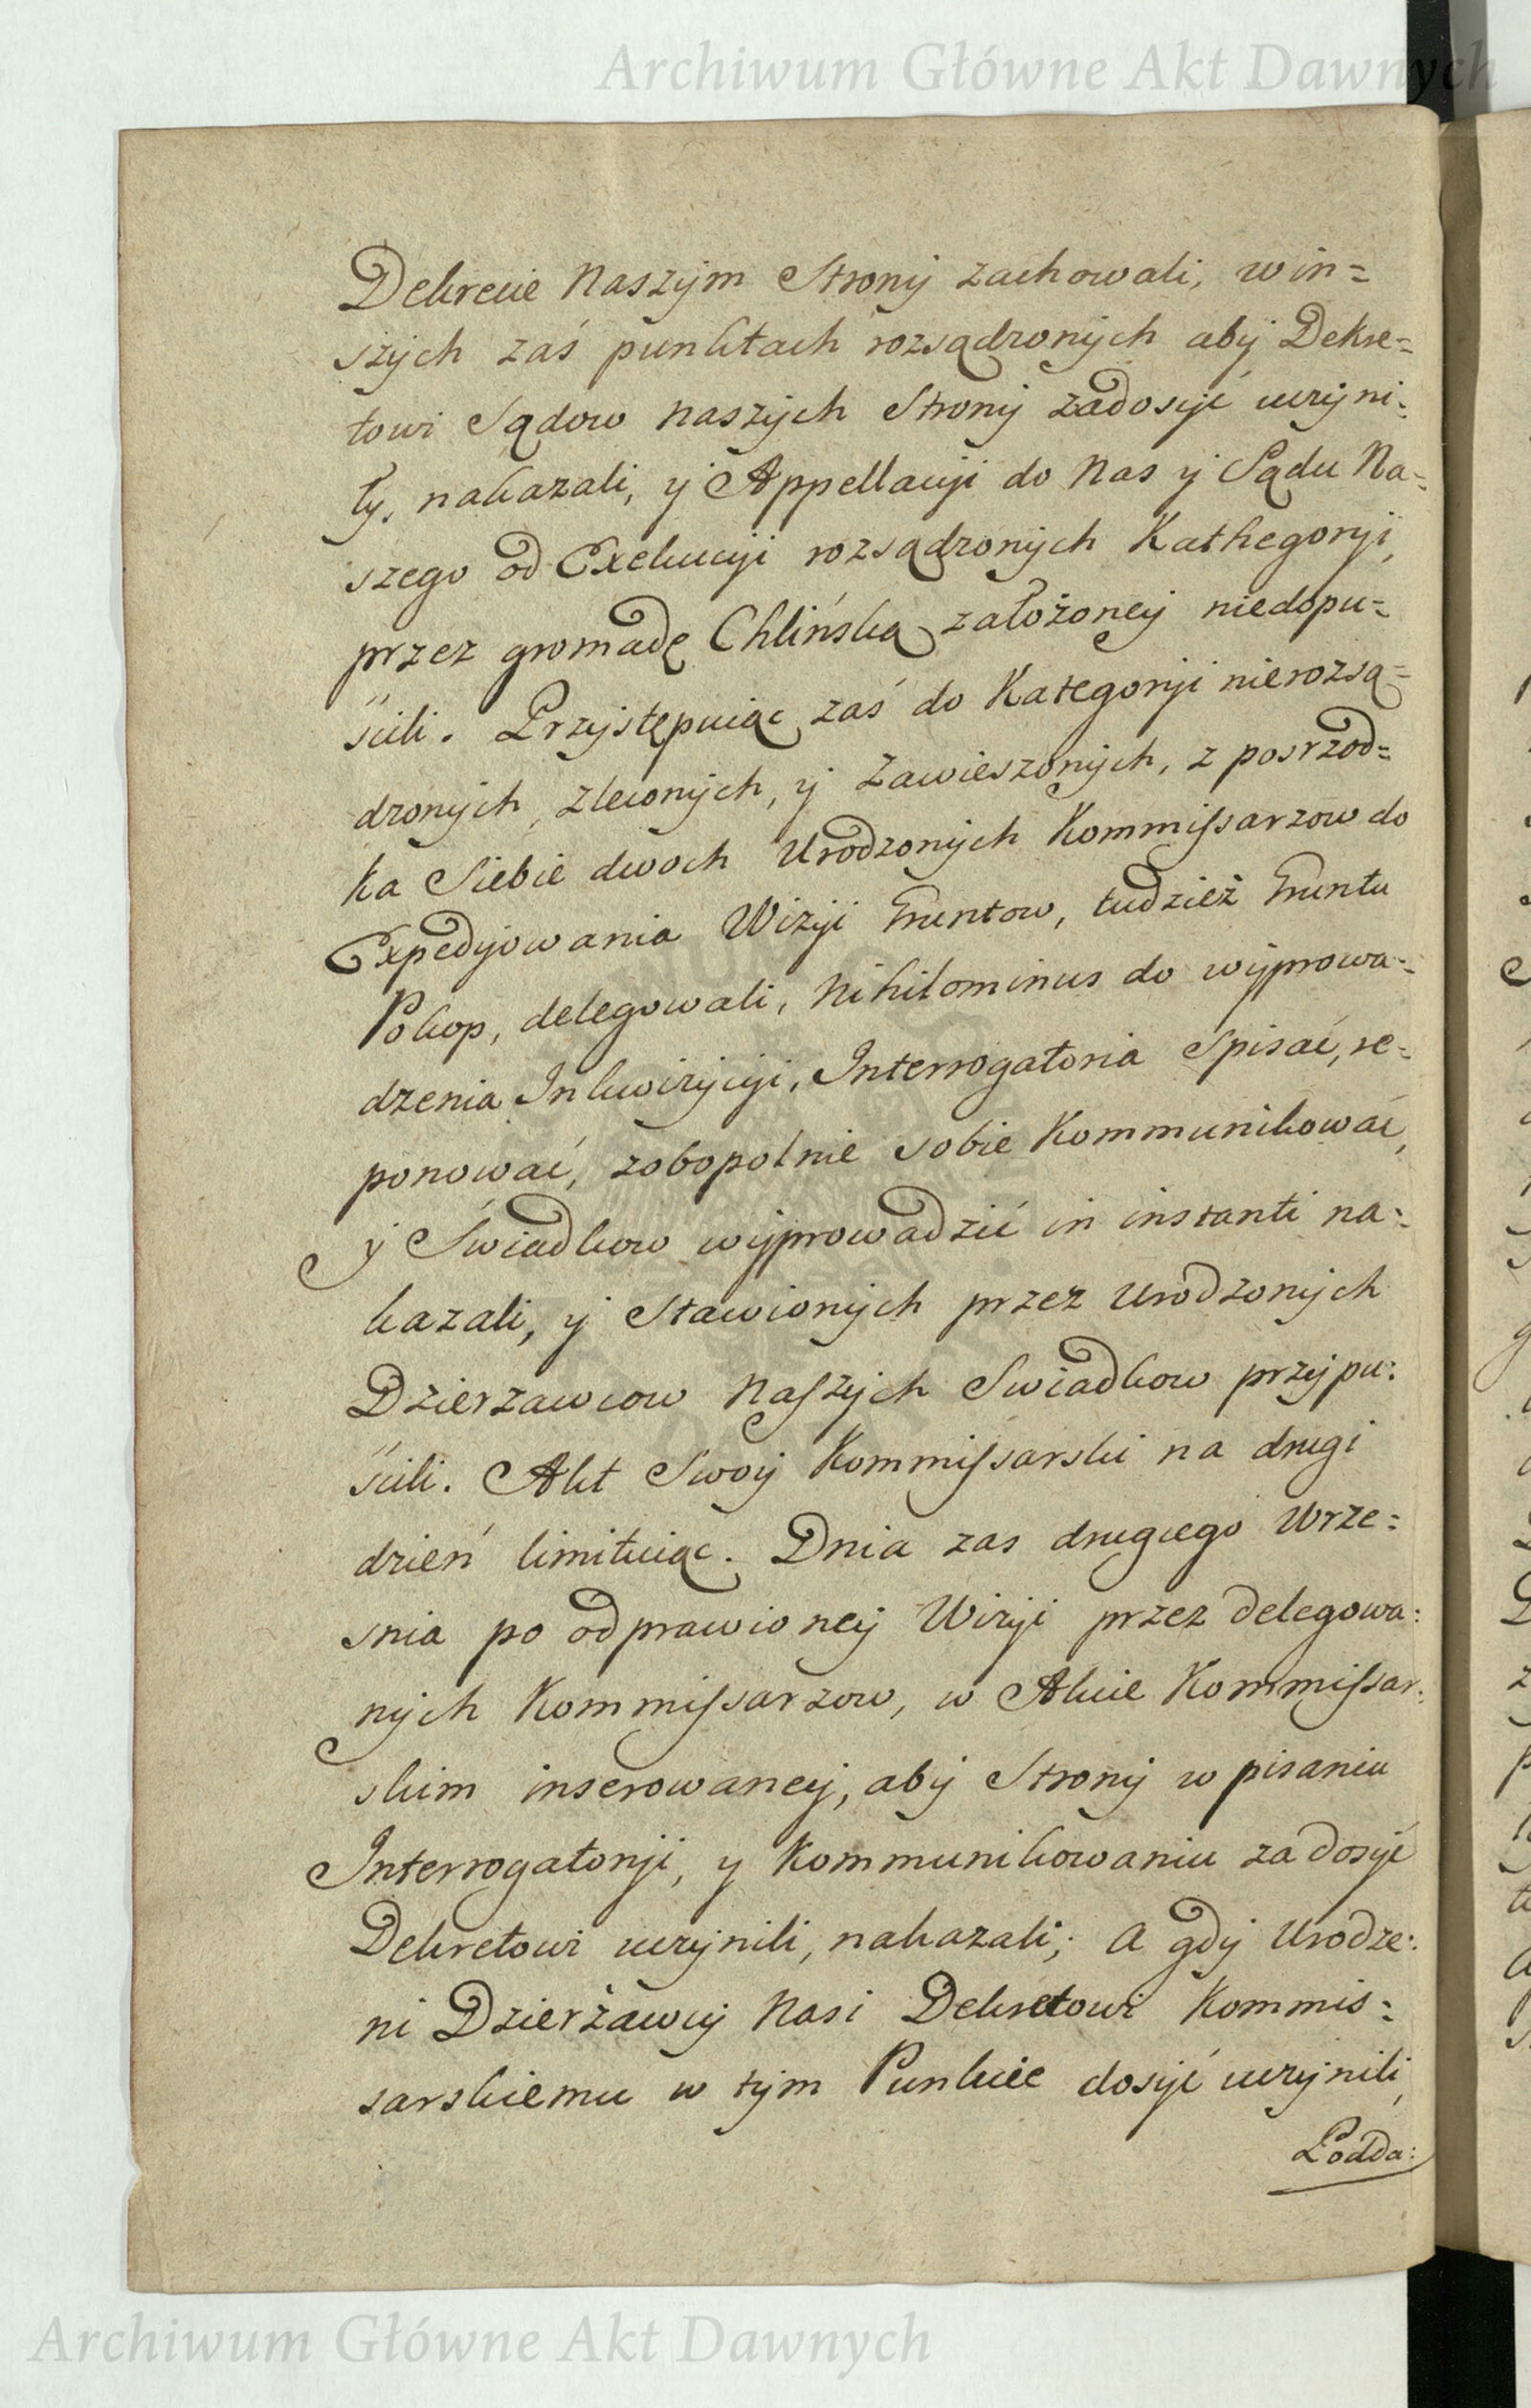 Archiwum Główne Akt Dawnych
Dekrecie Naszym Strony zachowali, w in=
szych zaś punktach rozsądzonych aby Dekre=
towi Sądow naszych Strony zadosyć uczyni=
ły, nakazali, y Appellacyi do Nas y Sądu Na=
szego od Exekucyi rozsądzonych Kathegoryi,
przez gromadę Chlińską założoney niedopu=
ścili. Przystępuiąc zaś do Kategoryi nierozsą=
dzonych, zleconych, y zawieszonych, z posrzod=
ka Siebie dwoch Urodzonych Kommissarzow do
Expedyowania Wizyi Gruntow, tudzież Gruntu
Pokop, delegowali, Nihilominus do wyprowa=
dzenia Inkwizycyi, Interrogatoria Spisać, re=
ponować, zobopolnie sobie Kommunikować,
y Świadkow wyprowadzić in instanti na=
kazali, y Stawionych przez Urodzonych
Dzierzawcow Naszych Swiadkow przypu=
ścili. Akt Swoy Kommissarski na drugi
dzień limituiąc. Dnia zas drugiego Wrze=
snia po odprawioney Wizyi przez delegowa=
nych Kommissarzow, w Akcie Kommissar=
skim inserowaney, aby Strony w pisaniu
Interrogatoryi, y Kommunikowaniu zadosyć
Dekretowi uczynili, nakazali; A gdy Urodze=
ni Dzierżawcy Nasi Dekretowi Kommis=
sarskiemu w tym Punkcie dosyć uczynili,
Podda=
Archiwum Główne Akt Dawnych